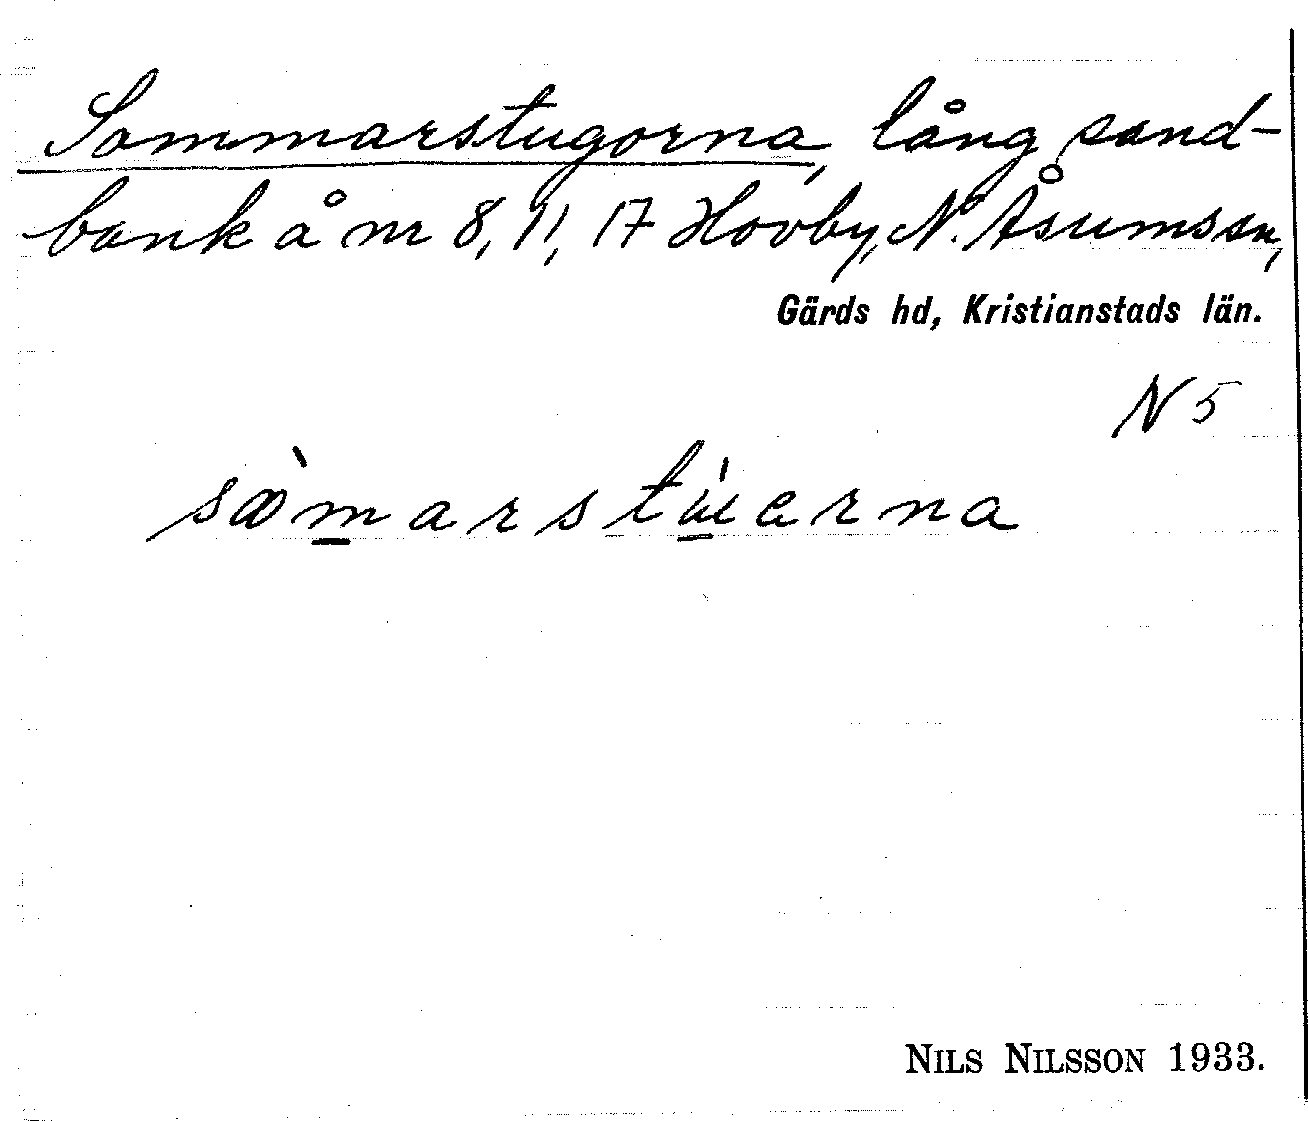 Sommarstugorna, lång sand-
bank å nr 8, 11, 17 Hovby, N. Åsums sn,
Gärds hd, Kristianstads län.
N 5
sæ̀marstu̇erna
NILS NILSSON 1933.